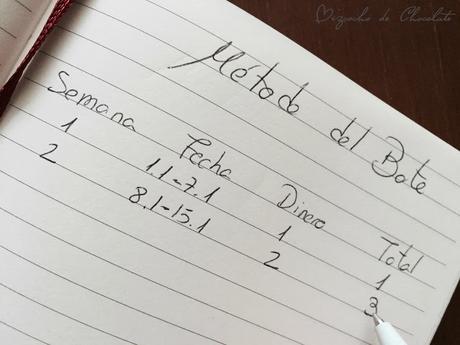 Bizcocho de Chocolate
Método del Bote
Semana Fecha Dinero Total
1 1.1-7.1 1 1
2 8.1-15.1 2 3